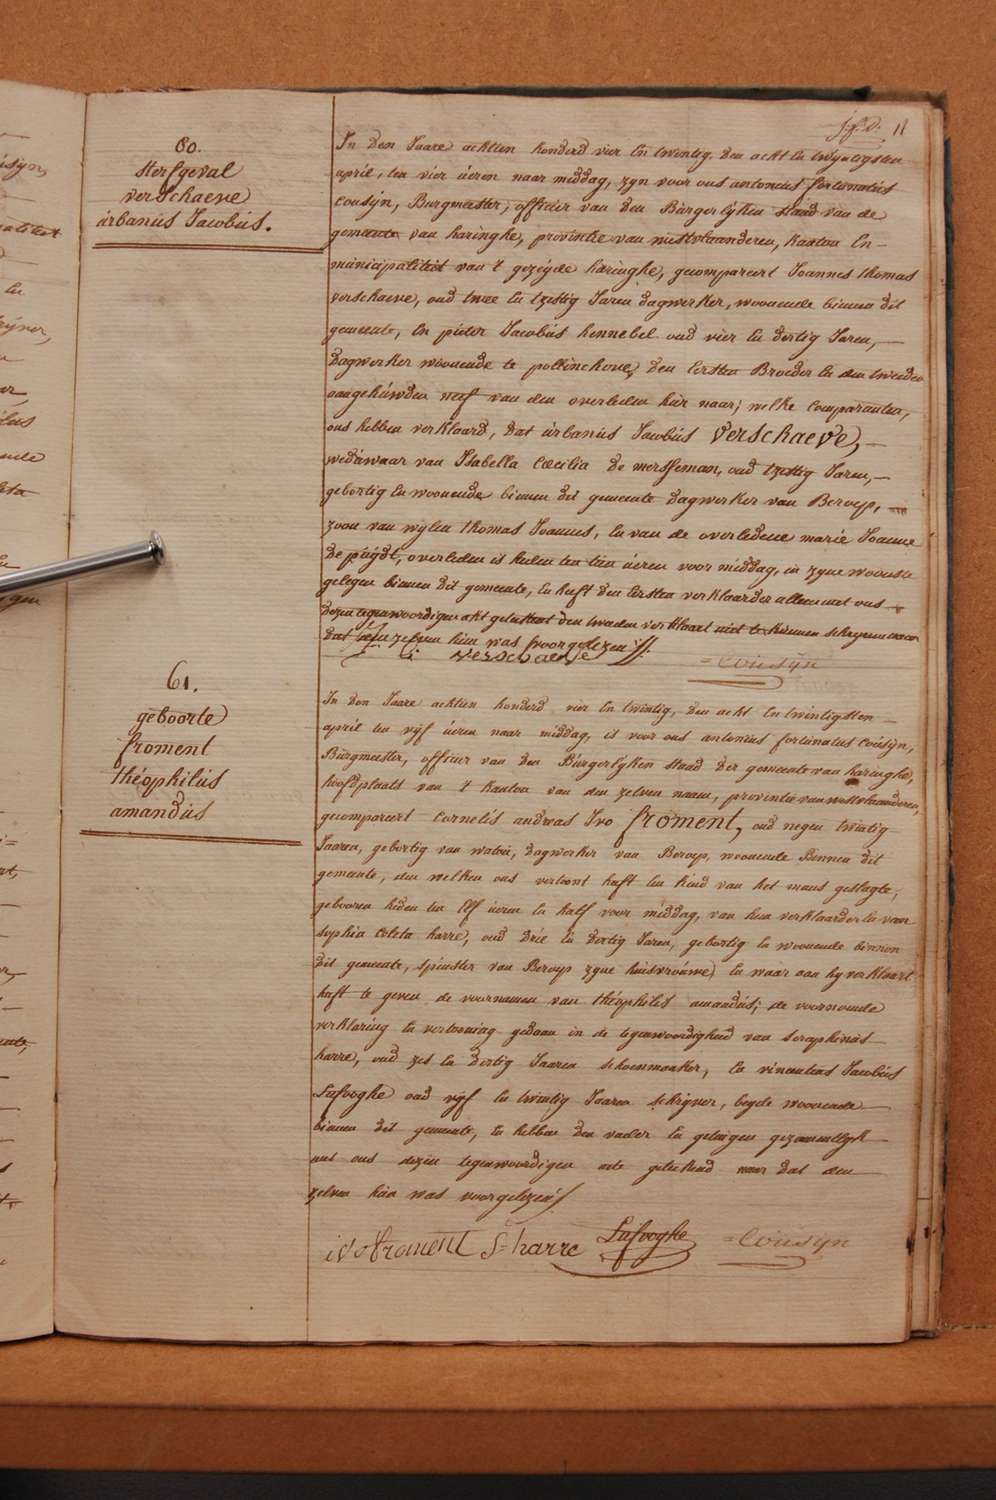 11
60.
sterfgeval
verschaeve
ürbanüs Jacobüs.
In den Jaare achtien honderd vier en twintig, den acht en twyntigsten
april, ten vier üeren naar middag, zyn voor ons antonius fortunatüs
cousÿn, Burgmeester, officier van den Bürgerlÿken staad van de
gemeente van haringhe, provintie van westvlaanderen, kanton En
municipaliteit van 't gezégde haringhe, gecompareert Joannes thomas
verschaeve, oud twee en tzestig Jaren dagwerker, woonende binnen dit
gemeente, En pieter Jacobüs hennebel oud vier en dertig Jaren,
dagwerker woonende te pollinchove, den Eersten Broeder en den tweeden
aangehüwden neef van den overleden hier naer; welke comparanten,
ons hebben verklaard, dat ürbanüs Jacobüs Verschaeve,
wedüwaar van Isabella Cœcilia de mersseman, oud tzestig Jaren,
gebortig en woonende binnen dit gemeente dagwerker van Beroep,
zoon van wylen thomas Joannes, en van de overledene marie Joanne
De püÿdt, overleden is heden ten tien üeren voor middag, in zyne wooning
gelegen binnen dit gemeente, en heeft den Eersten verklaarder alleen met ons
dezen tegenwoordigen akt geteekent den tweeden verklaart niet te kunnen schryven naar
dat zelven hun was voorgelezen
verschaeve
=Cousÿn
61.
geboorte
froment
théophilüs
amandüs
In den Jaare achtien honderd vier en twintig, den acht en twintigsten
april ten vÿf üeren naar middag, is voor ons antonius fortunatus Cousÿn,
Bürgmeester, officier van den Bürgerlÿken staad der gemeente van haringhe,
hoofdplaats van 't kanton van den zelven naam, provintie van westvlaanderen,
gecompareert Cornelis andreas Ivo froment, oud negen twintig
Jaaren, gebortig van watou, dagwerker van Beroep, woonende Binnen dit
gemeente, den welken ons vertoont haft een kind van het mans geslagte,
gebooren heden ten Elf üeren en half voor middag, van hem verklaarder en van
sophia Coleta harre, oud drie en dertig Jaren, gebortig en woonende binnen
dit gemeente, spinster van Beroep zyne hüisvroüwe) en waar aan hy verklaart
haft te geven de voornamen van théophilüs amandüs; de voornoemde
verklaring en vertooning gedaan in de tegenwoordigheid van seraphinüs
harre, oud zes en dertig Jaaren schoenmaaker, en vincentius Jacobüs
Lafooghe oud vÿf en twintig Jaaren schryver, beyde woonende
binnen dit gemeente, en hebben den vader en getuigen gezamentlyk
met ons dezen tegenwoordigen acte geteekend naar dat den
zelven hün was voorgelezen
ivo froment S= harre Lafooghe =Cousÿn